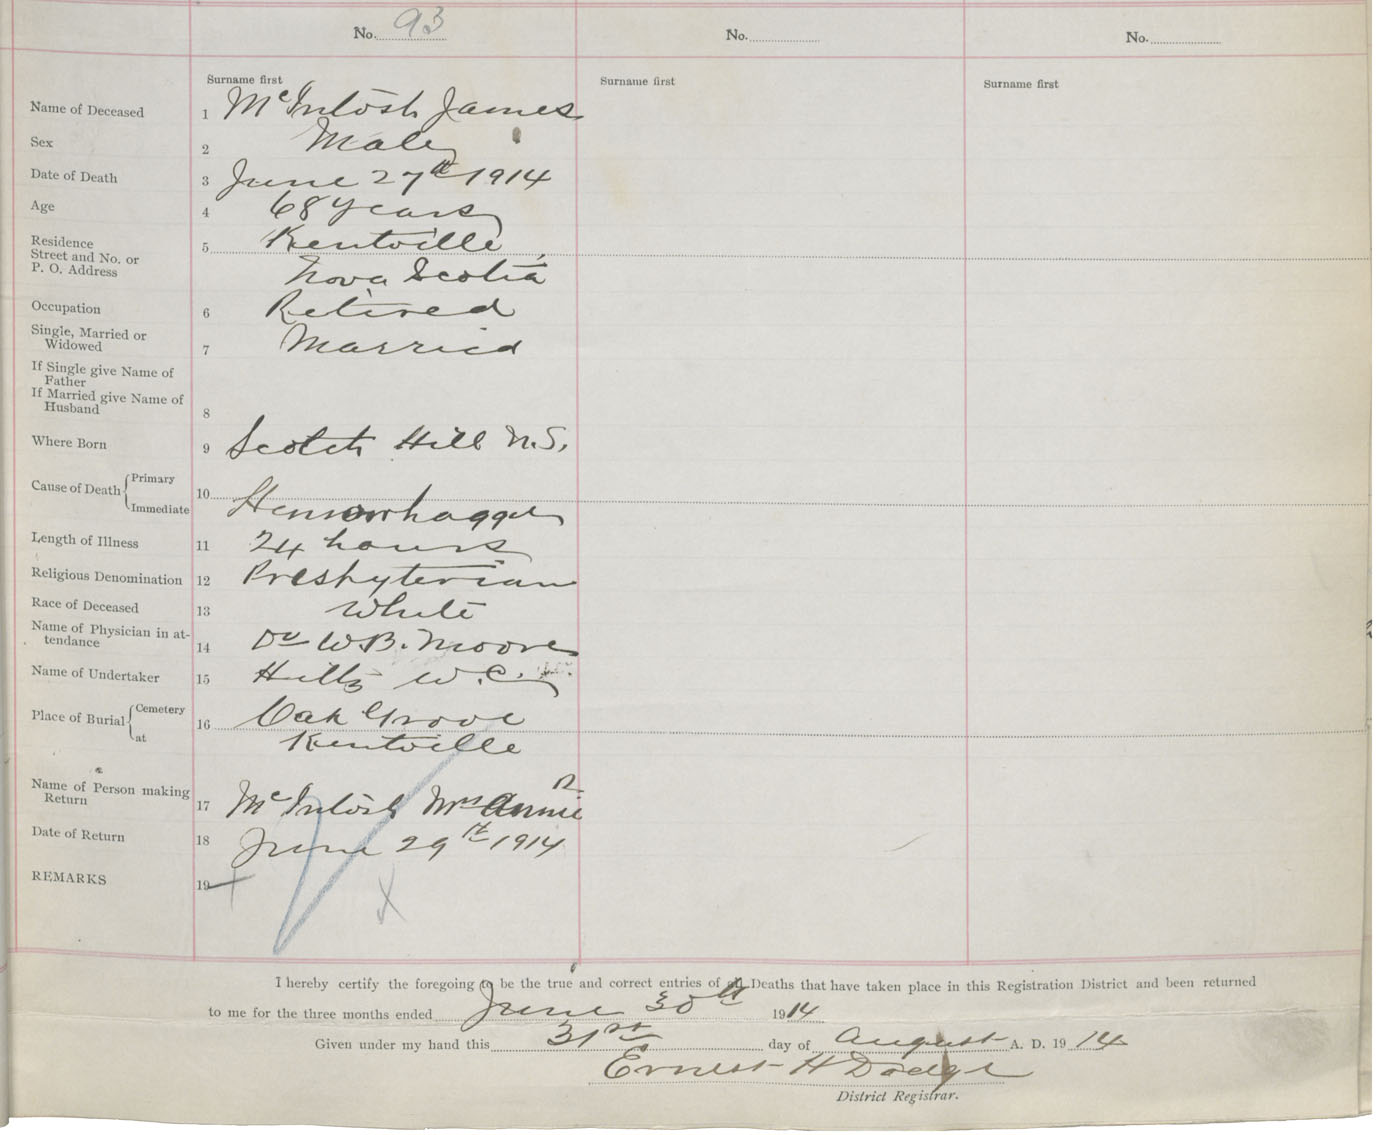 No. 93
No.
No.
Surname first
Surname first
Surname first
Name of Deceased 1 McIntosh James
Sex 2 Male
Date of Death 3 June 27th 1914
Age 4 68 years
Residence
Street and No. or
P. O. Address
5 Kentville,
Nova Scotia
Occupation 6 Retired
Single, Married or
Widowed
7 Married
If Single give Name of
Father
If Married give Name of
Husband
8
Where Born 9 Scotch Hill N.S.
Cause of Death Primary 10
Immediate Hemorrhagge
Length of Illness 11 24 hours
Religious Denomination 12 Presbyterian
Race of Deceased 13 White
Name of Physician in at-
tendance
14 Dr W.B. Moore
Name of Undertaker 15 Hiltz W.C.
Place of Burial Cemetery 16 Oak Grove
at Kentville
Name of Person making
Return
17 McIntosh Mrs Annie R.
Date of Return 18 June 29th 1914
REMARKS 19
I hereby certify the foregoing to be the true and correct entries of all Deaths that have taken place in this Registration District and been returned
to me for the three months ended June 30th 1914
Given under my hand this 31st day of August A. D. 1914
Ernest H Dodge
District Registrar.